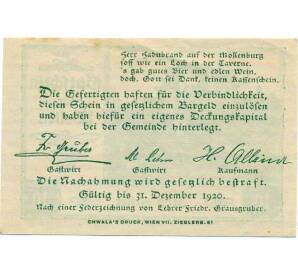 Herr Hadubrand auf der Mollenburg
soff wie ein Loch in der Taverne.
's gab gutes Bier und edlen Wein,
doch, Gott sei Dank, keinen Kassenschein.
Die Gefertigten haften für die Verbindlichkeit,
diesen Schein in gesetzlichem Bargeld einzulösen
und haben hiefür ein eigenes Deckungskapital
bei der Gemeinde hinterlegt.
Fr. Gruber
Gastwirt Gastwirt Kaufmann
Die Nachahmung wird gesetzlich bestraft.
Gültig bis 31. Dezember 1920.
Nach einer Federzeichnung von Lehrer Friedr. Grausgruber.
CHWALA'S DRUCK, WIEN VII. ZIEGLERG. 61